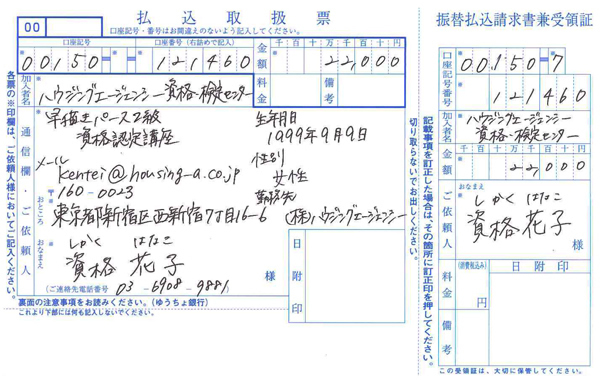 00
払込取扱票
口座記号・番号はお間違えのないよう記入してください。
口座記号
口座番号(右詰めで記入)
00150 7 121460
金額
千百十万千百十円
22,000
料金
備考
加入者名
ハウジングエージェンシー資格・検定センター
各票の※印欄は、ご依頼人様においてご記入ください。
通信欄・ご依頼人
早描きパース2級
資格認定講座
生年月日
1999年9月9日
メール
kentei@housing-a.co.jp
性別
女性
〒160-0023
勤務先
おところ
東京都新宿区西新宿7丁目16-6
(株)ハウジングエージェンシー
おなまえ
しかく はなこ
資格 花子
様
(ご連絡先電話番号 03-6908-9881)
日附印
裏面の注意事項をお読みください。(ゆうちょ銀行)
これより下部には何も記入しないでください。
切り取らないでお出しください。
記載事項を訂正した場合は、その箇所に訂正印を押してください。
振替払込請求書兼受領証
口座記号番号
00150 7
121460
加入者名
ハウジングエージェンシー
資格・検定センター
金額
千百十万千百十円
22,000
ご依頼人
おなまえ
しかく はなこ
資格 花子
様
料金
(消費税込み)
円
日附印
備考
この受領証は、大切に保管してください。